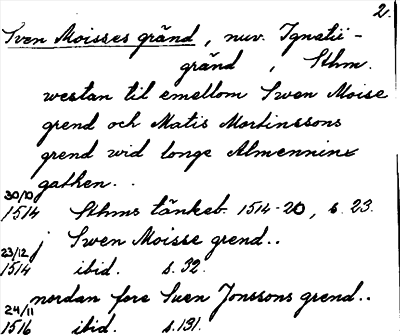 2.
Sven Moisses gränd, nuv. Ignatii-
gränd, Sthm.
westan til emellom Swen Moise
grend och Matis Mortinssons
grend wid longe Almenninx
gathen..
30/10
1514 Sthms tänkeb. 1514-20, s. 23.
j Swen Moisse grend..
23/12
1514 ibid. s. 32.
nordan fore Suen Jonssons grend..
24/11
1516 ibid. s. 191.